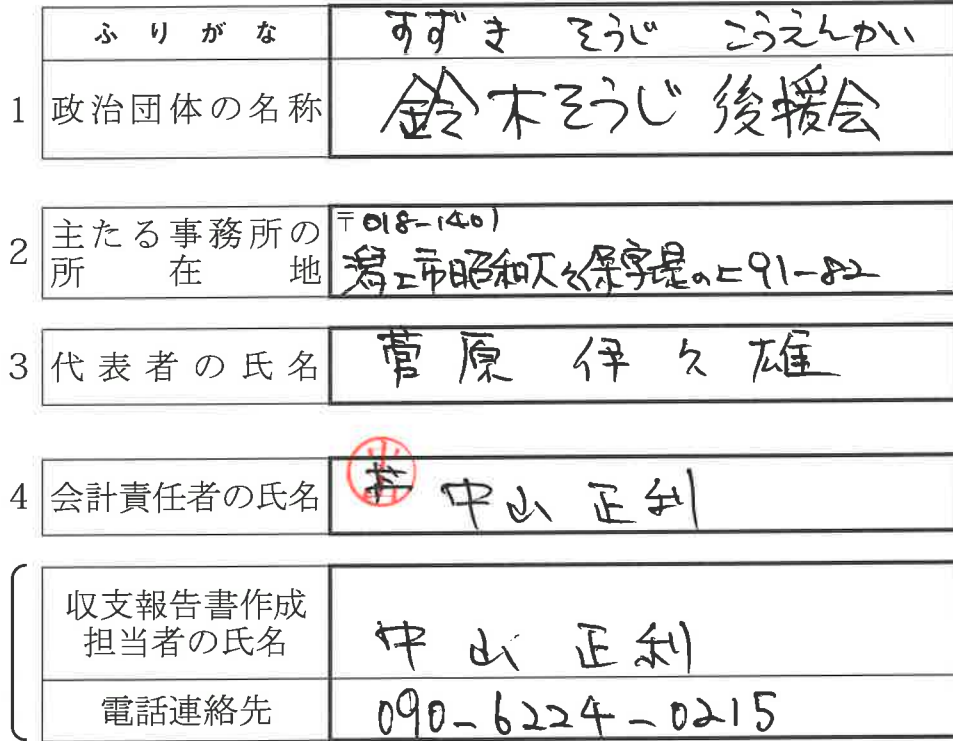 ふりがな すずき そうじ こうえんかい
1 政治団体の名称 鈴木そうじ 後援会
2 主たる事務所の所在地 〒018-1401
潟上市昭和大久保字堤の上91-82
3 代表者の氏名 菅原 伊久雄
4 会計責任者の氏名 中山 正利
収支報告書作成
担当者の氏名 中山 正利
電話連絡先 090-6224-0215